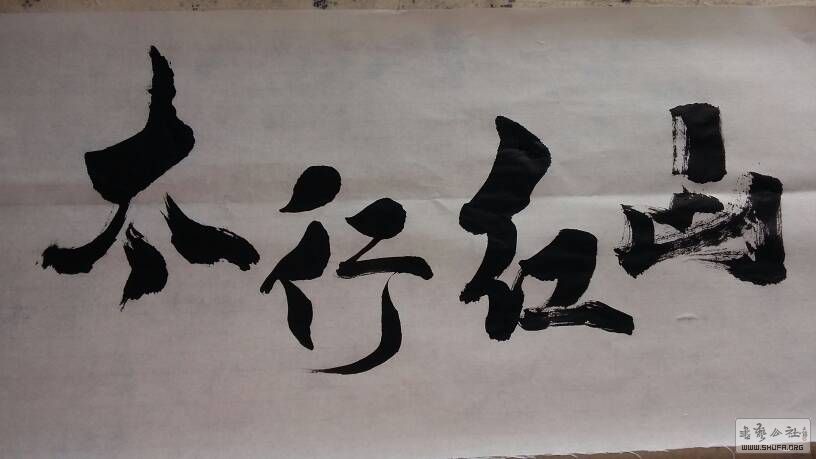 太行红山
书艺公社
WWW.SHUFA.ORG